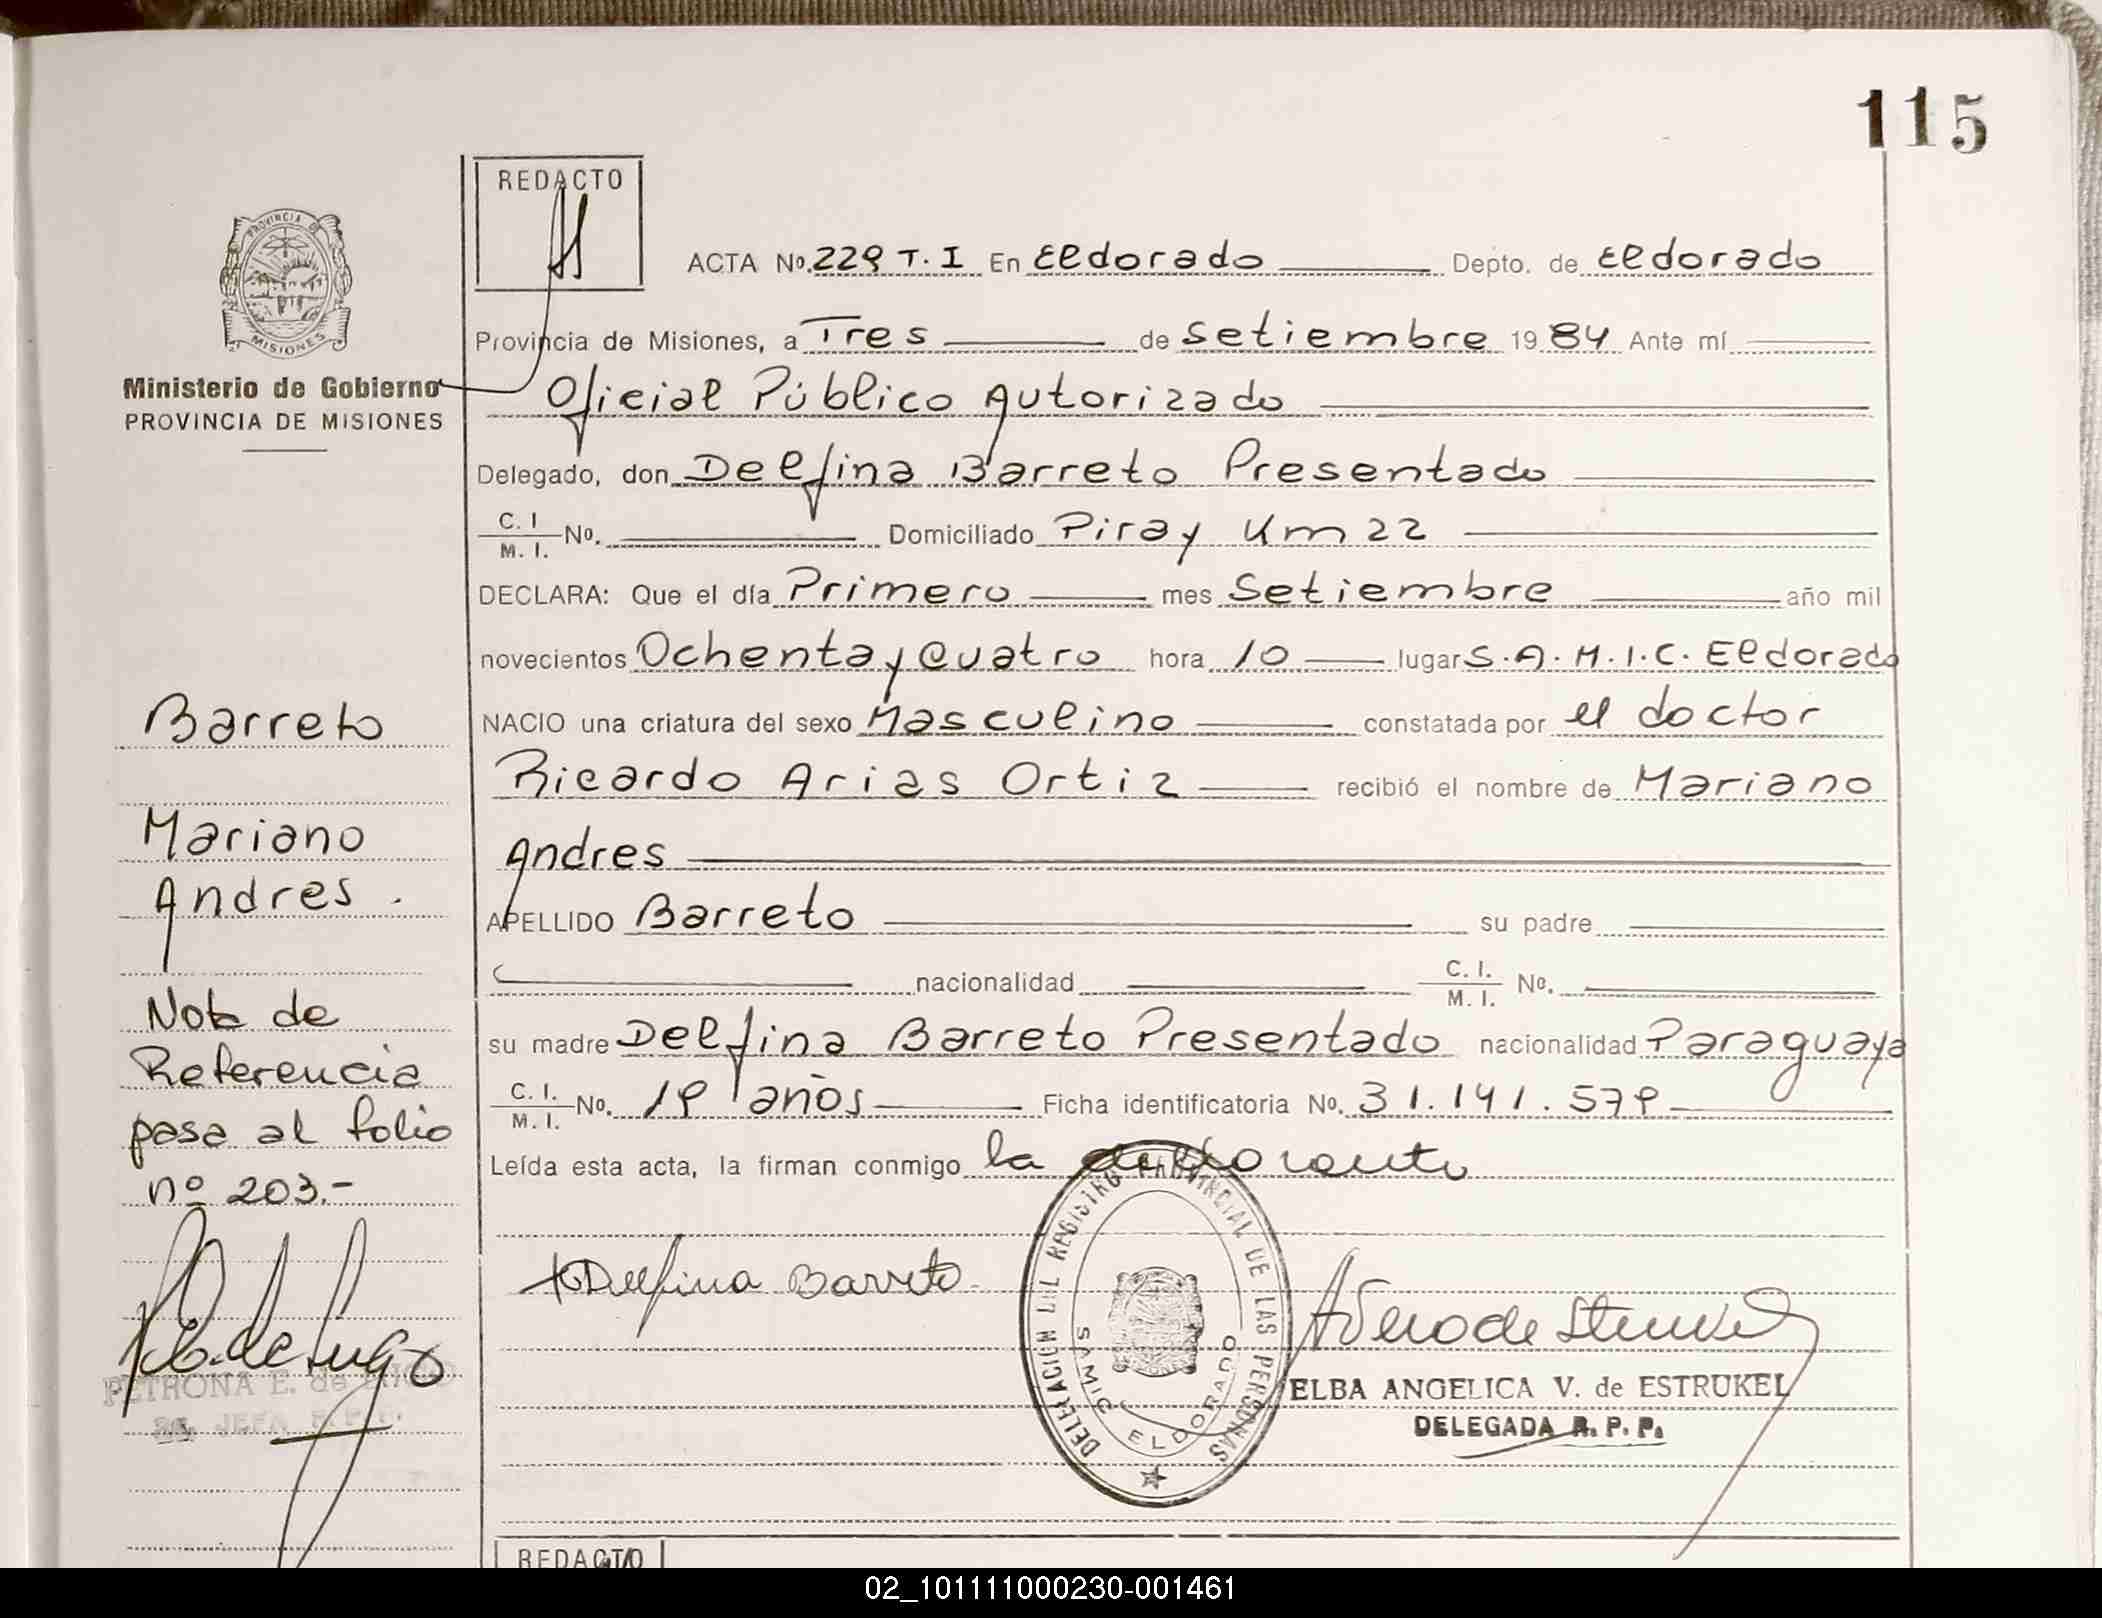 115
REDACTO
ACTA No. 229 T. I En Eldorado Depto. de Eldorado
Provincia de Misiones, a Tres de Setiembre 19 84 Ante mí
Oficial Público Autorizado
Delegado, don Delfina Barreto Presentado
C. I. / M. I. No. Domiciliado Piray Km 22
DECLARA: Que el día Primero mes Setiembre año mil
novecientos Ochenta y Cuatro hora 10 lugar S.A.M.I.C. Eldorado
NACIO una criatura del sexo Masculino constatada por el doctor
Ricardo Arias Ortiz recibió el nombre de Mariano
Andres
APELLIDO Barreto su padre
nacionalidad C. I. / M. I. No.
su madre Delfina Barreto Presentado nacionalidad Paraguaya
C. I. / M. I. No. 19 años Ficha identificatoria No. 31.141.579
Leída esta acta, la firman conmigo la
Delfina Barreto
DELEGACION DEL REGISTRO PROVINCIAL DE LAS PERSONAS
SAMIC ELDORADO
ELBA ANGELICA V. de ESTRUKEL
DELEGADA R. P. P.
PROVINCIA DE
MISIONES
Ministerio de Gobierno
PROVINCIA DE MISIONES
Barreto
Mariano
Andres.
Nota de
Referencia
pasa al folio
nº 203.-
PETRONA E. de LUGO
JEFA R.P.P.
REDACTO
02_101111000230-001461